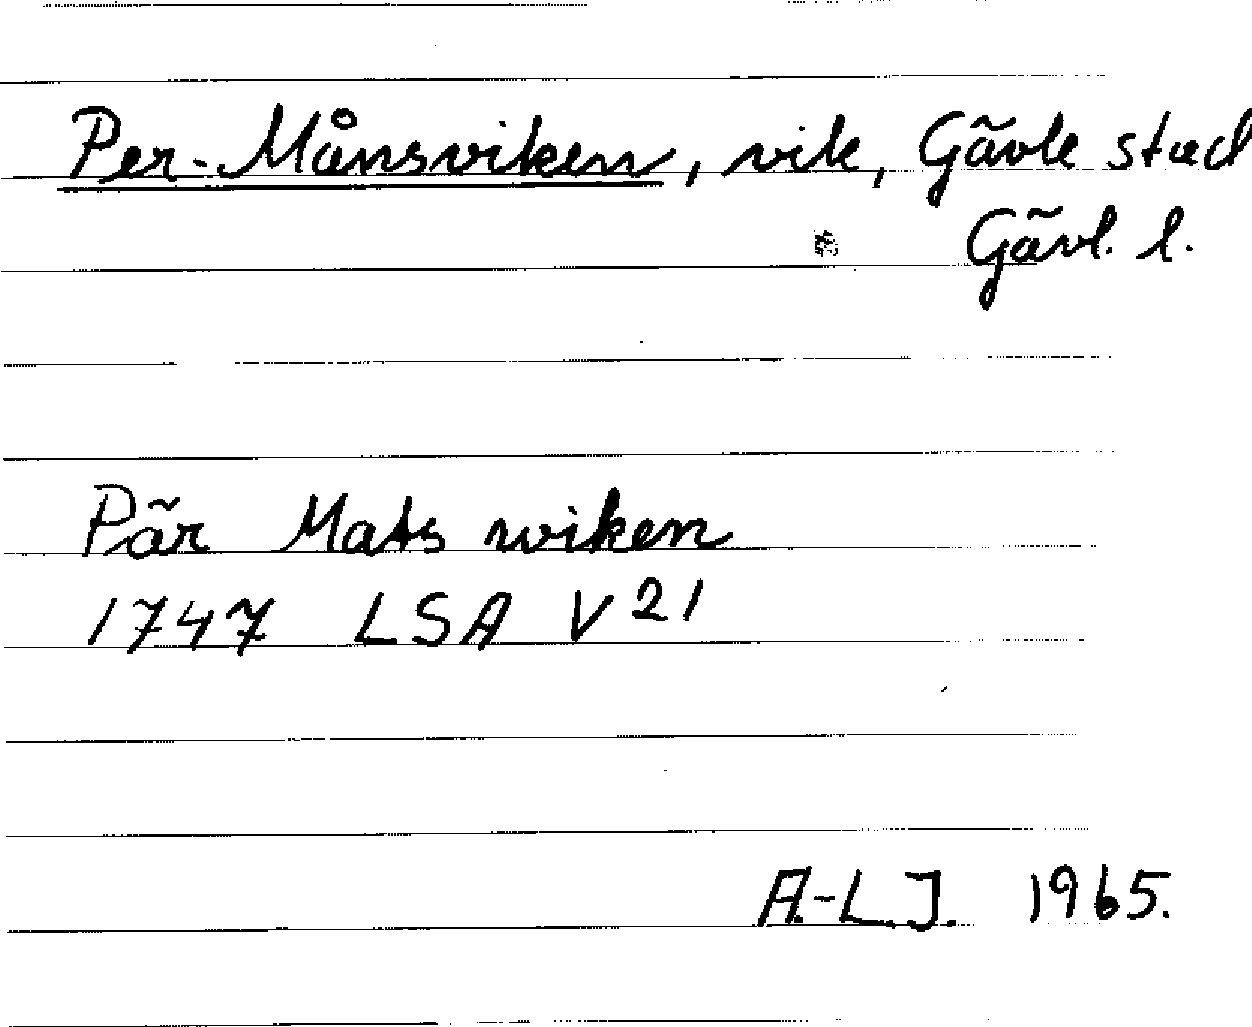 Per-Månsviken, vik, Gävle stad
Gävl. l.
Pär Mats wiken
1747 LSA V 21
A.-L. J. 1965.